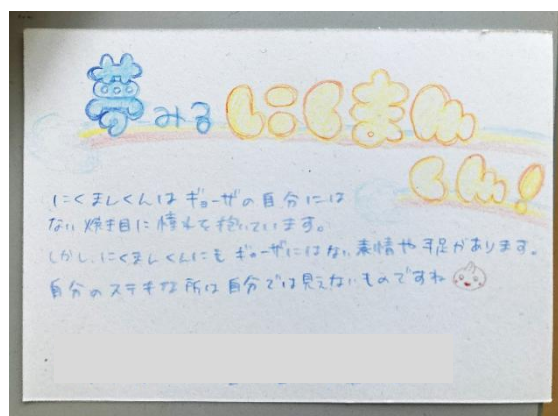 夢みる にくまん
くん!
にくまんくんは ギョーザの自分には
ない 焼き目に憧れを抱いています。
しかし、にくまんくんにも ギョーザにはない 表情や手足があります。
自分のステキな所は自分では見えないものですね